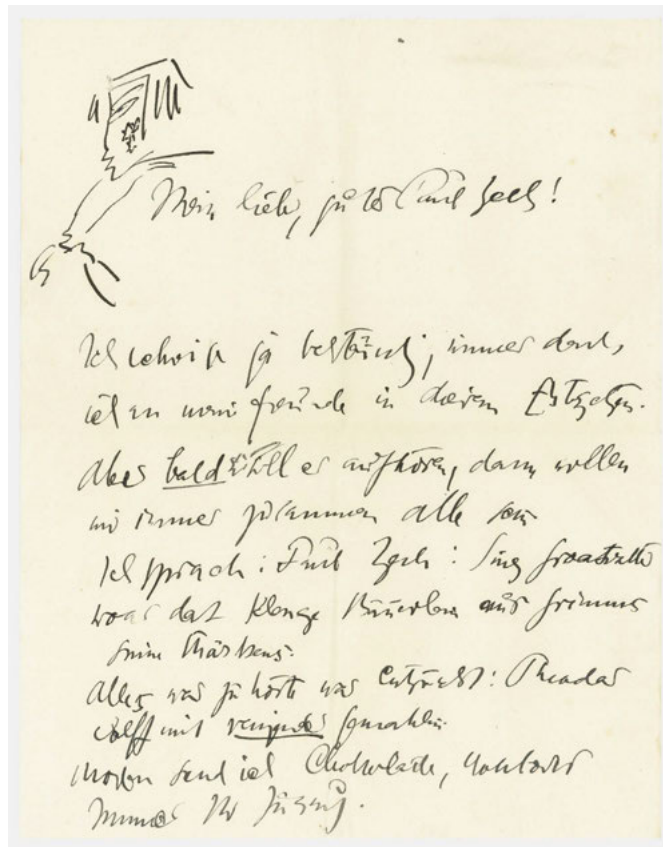 Mein lieb, guter Paul Zech!
Ich schreibe ja beständig, immer denk,
ich an meine Freunde in diesem
Aber bald soll es aufhören, dann wollen
wir immer zusammen alle sein
Ich sprach: Paul Zech:
war dat klenge Bäuerlein aus Grimms
Märchens.
Alles was zuhörte war entzückt: Theodor
Wolff mit reizender Gemahlin.
Morgen send ich Chokolade,
Immer Ihr Jussuf.